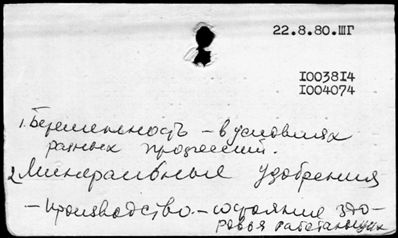 22.8.80.ШГ
I003814
I004074
1. Беременность – в условиях
разных профессий.
2. Минеральные удобрения
– производство. – состояние здо-
ровья работающих